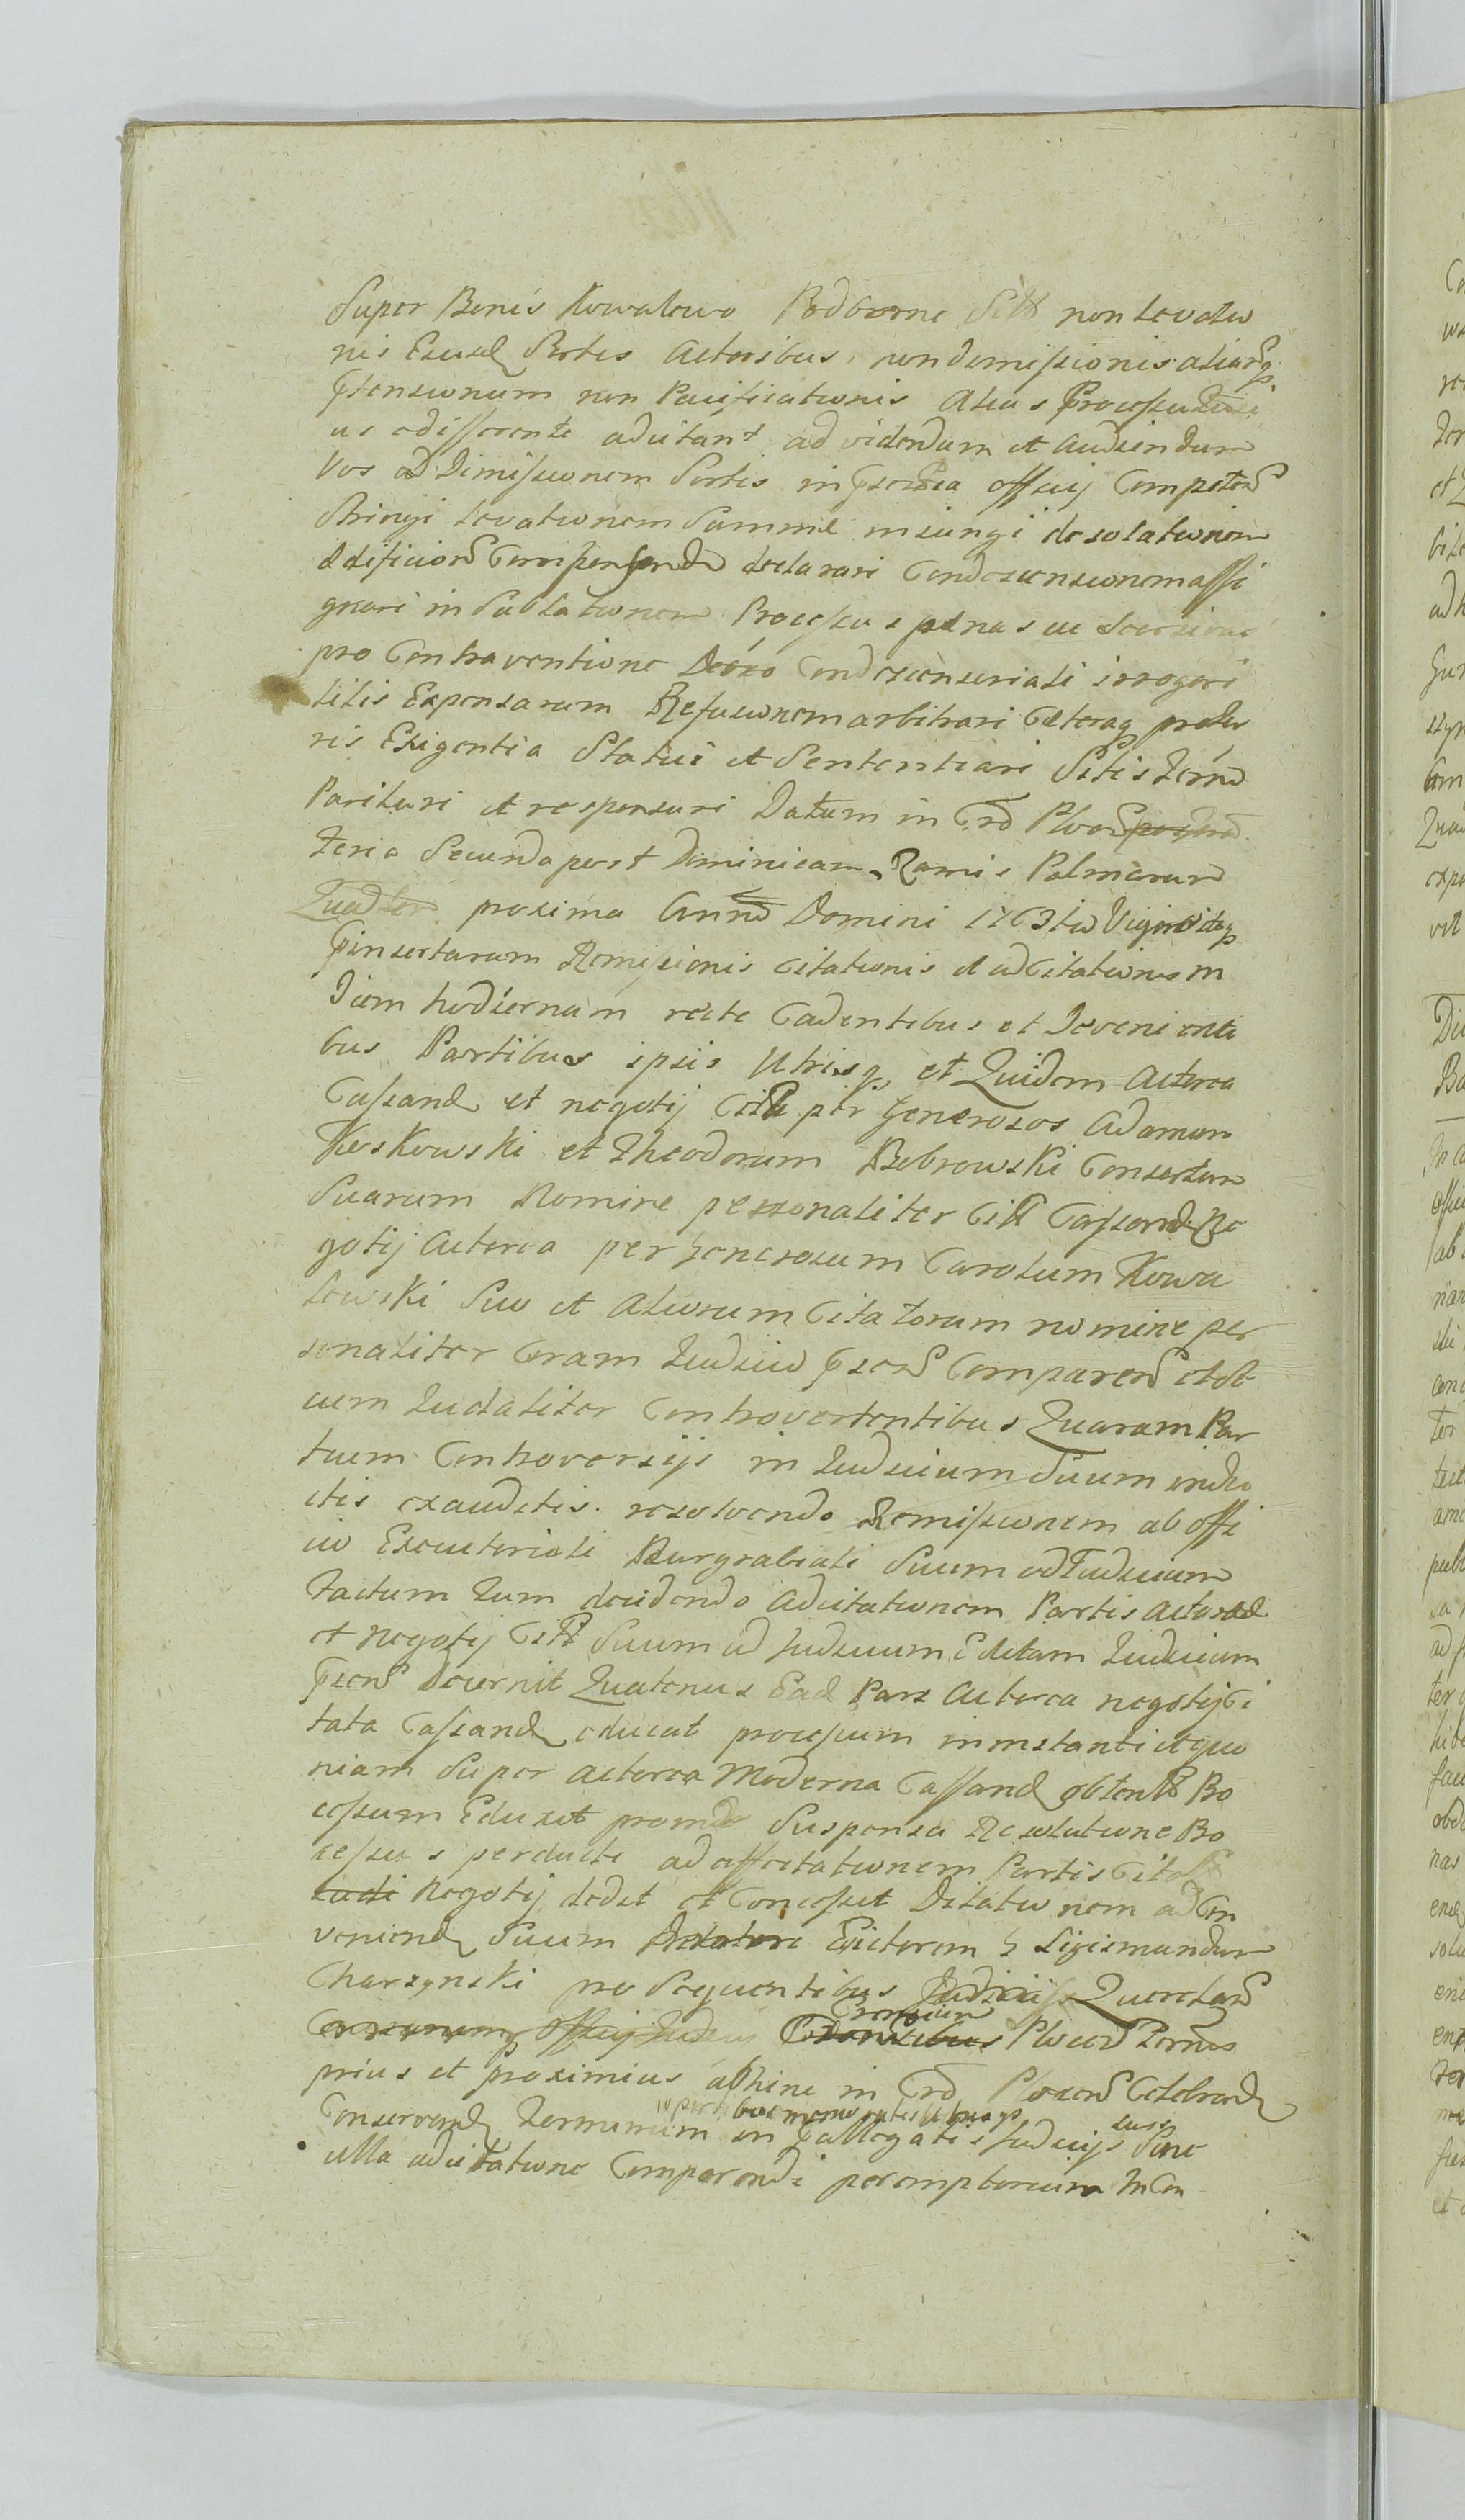 Super Bonis Kowalewo Podborne Sitt non Levatio
nis Eiusd Sortis Actoribus, non dimissionis aliarq
Ptensionum non Pacificationis Alias Processu
us edisserente adcitant ad videndum et Audiendum
Vos ad Dimissionem Sortis in Psentia Officij Competen
Stringi Levationem Summæ iniungi desolationem
Ædificior Compensandam declarari Condescensionem assi
gnari in Sublationem Processus pænas
pro Contraventione Decreto Condescensoriali irrogari
Litis Expensarum Refusionem arbitrari Cæteraq pro Ju
ris Exigentia Statui et Sententiari Sitis Termo
Parituri et responsuri Datum in Crō Plocen
Feria Secunda post Dominicam Ramis Palmarum
proxima Anno Domini 1763tio Vigore itaq
Pinsertarum Remissionis Citationis et adCitationum
Diem hodiernum recte Cadentibus et Devenienti
bus Partibus ipsis Utrisq et Quidem Actorea
Cassand et negotij Citt per Generosos Adamum
Koskowski et Theodorum Bobrowski Consortum
Suarum Nomine personaliter Citt Cassand Ne
gotij Actorea per Generosum Carolum Kowa
lewski Suo et Aliorum Citatorum nomine per
sonaliter Coram Judicio Psen Comparen et ob
cum Judialiter Controvertentibus Quarum Par
tium Controversijs in Judicium Suum indu
ctis exauditis resolvendo Remissionem ab offi
cio Executoriali Burgrabiali Suum ad Judicium
Factum Tum decidendo Adcitationem Partis Actoreæ
et negotij Citt Suum ad Judicium Editam Judicium
Psens Decernit Quatenus Ead Pars Actorea negotij Ci
tata Cassand educat processum in instanti et quo
niam Super Actorea Moderna Cassand obtent Pro
cessum Eduxit proinde Suspensa Resolutione Pro
cessus perducti ad affectationem Partis Citatæ
Negotij dedit et Concessit Dilationem ad Con
veniend Suum Evictorem G Sigismundum
Charzynski pro Sequentibus Judicijs Querelar
Officij Plocen Terminus
prius et proximius abhinc in Crō Plocen Celebrand
partibus memoratis Utrisq
Conservand Terminum in Pallegatis Judicijs Sine
ulla adcitatione Comparendi peremptorium in Con